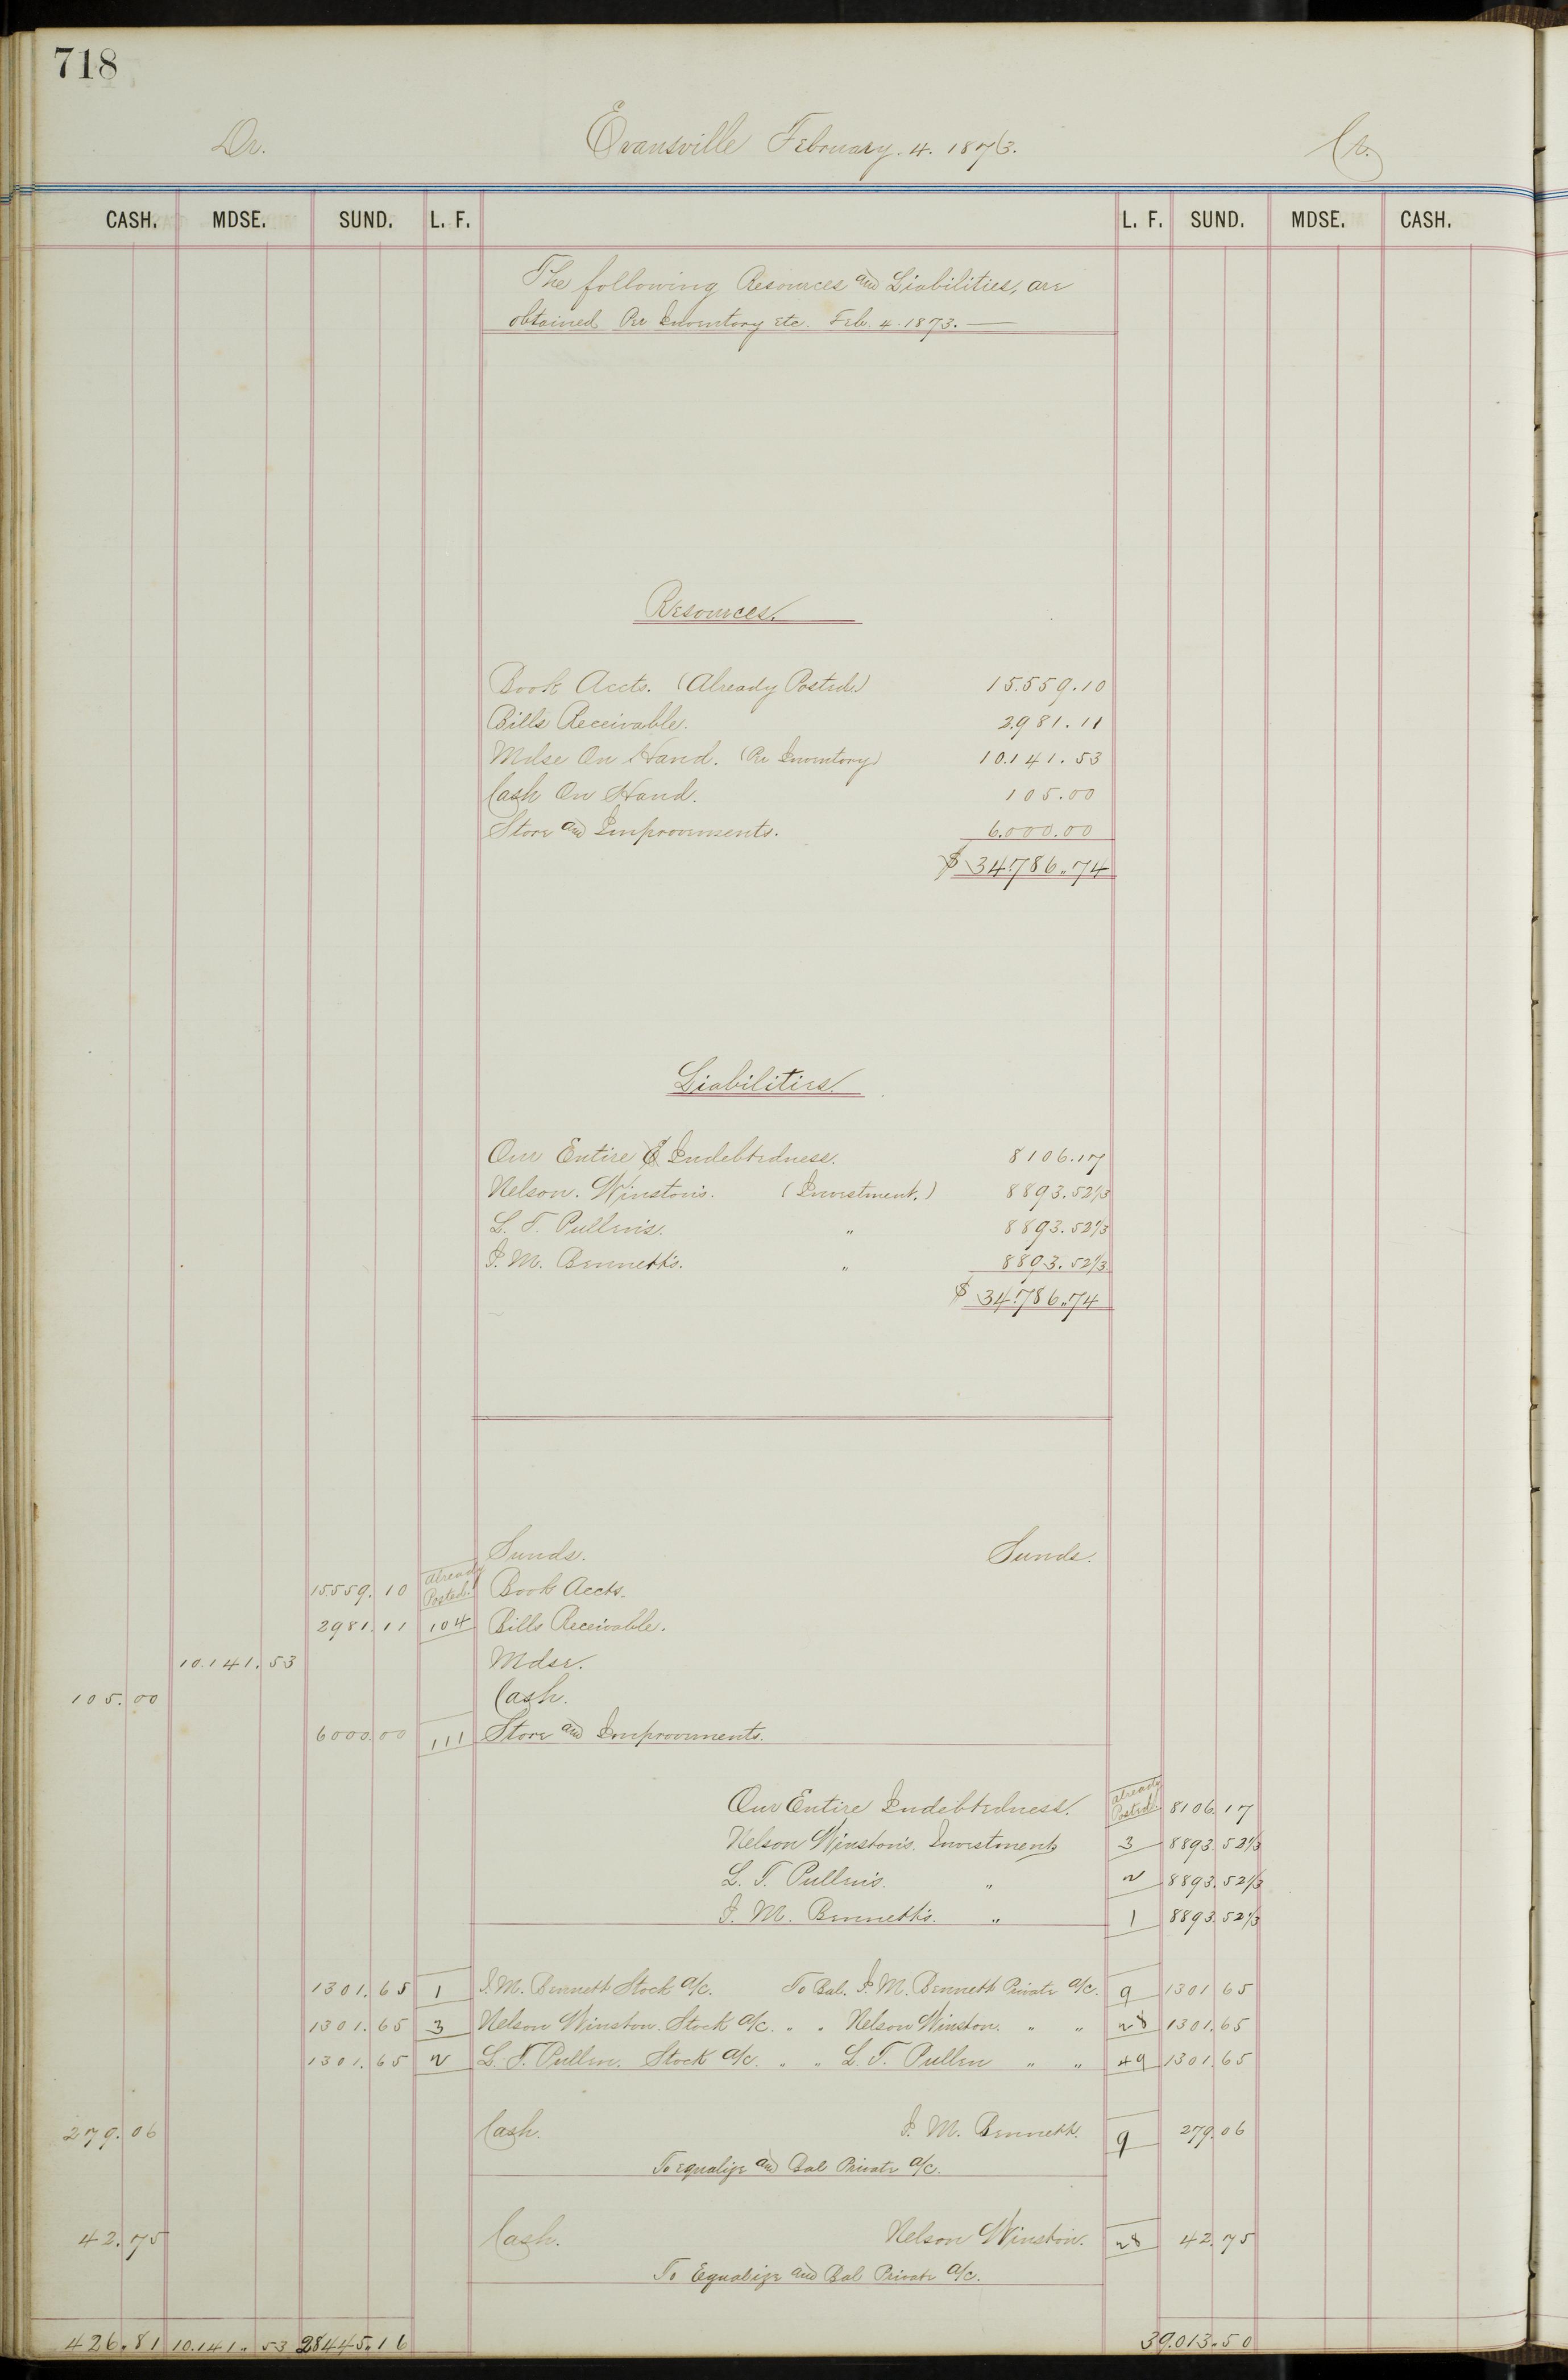 718
Dr. Evansville February. 4. 1873. Cr.
CASH. MDSE. SUND. L. F. L. F. SUND. MDSE. CASH.
The following Resources and Liabilities, are
obtained Per Inventory Etc. Feb. 4. 1873. —
Resources.
Book Accts. (Already Posted.) 15.559.10
Bills Receivable. 2981.11
Mdse On Hand. (Per Inventory) 10.141.53
Cash On Hand. 105.00
Store and Improovments. 6.000.00
$ 34.786.74
Liabilities.
Our Entire Indebtedness. 8106.17
Nelson. Winston's. (Investment.) 8893.52 1/3
L. T. Pullen's. " 8893.52 1/3
I. M. Bennett's. " 8893.52 1/3
$ 34.786.74
Sunds. Sunds.
15.559.10 Already Posted. Book Accts.
2981.11 104 Bills Receivable.
10.141.53 Mdse.
105.00 Cash.
6000.00 111 Store and Improovments.
Our Entire Indebtedness. Already Posted 8106.17
Nelson Winston's. Investment 3 8893.52 1/3
L. T. Pullen's. " 2 8893.52 1/3
I. M. Bennett's. " 1 8893.52 1/3
1301.65 1 I. M. Bennett Stock a/c. To Bal. I. M. Bennett Private a/c. 9 1301.65
1301.65 3 Nelson Winston. Stock a/c. " " Nelson Winston. " " 28 1301.65
1301.65 2 L. T. Pullen. Stock a/c. " " L. T. Pullen " " 49 1301.65
279.06 Cash. I. M. Bennett. 9 279.06
To Equalize and Bal Private a/c.
42.75 Cash. Nelson Winston. 28 42.75
To Equalize and Bal Private a/c.
426.81 10.141.53 28445.16 39.013.50